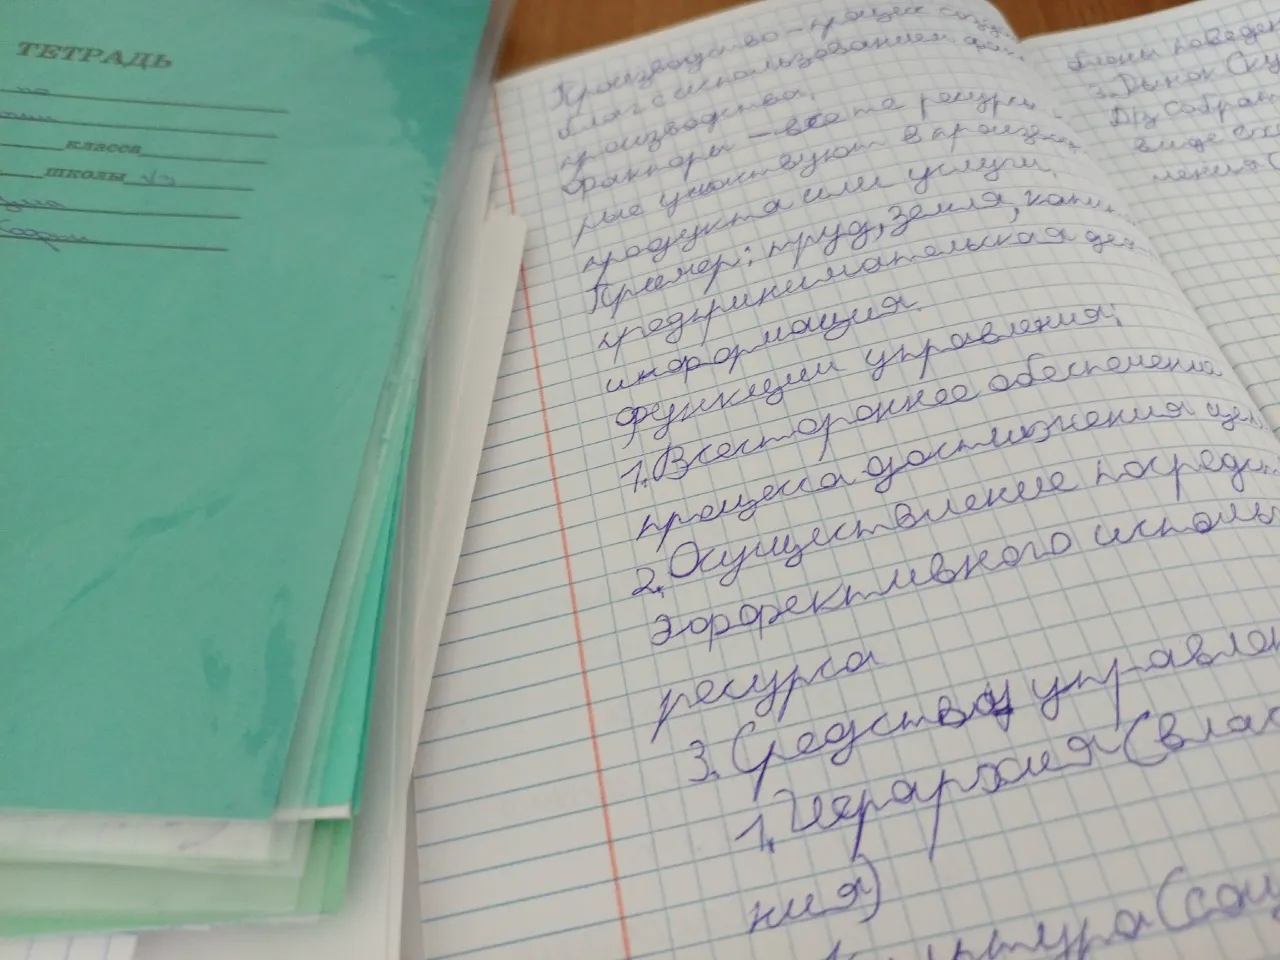 ТЕТРАДЬ
по
класса
школы
Производство - процесс
благ с использованием
производства.
Факторы - все те ресурсы
рые участвуют в произво
продукта или услуги.
Пример: труд, земля, капи
предпринимательская дея
информация.
Функции управления:
1. Всестороннее обеспечение
процесса достижения цел
2. Осуществление посредс
эффективного исполь
ресурса
3. Средства управлен
1. Иерархия (влас
ния)
культура (соц
блоны поведен
3. Рынок (ку
виде
ления (